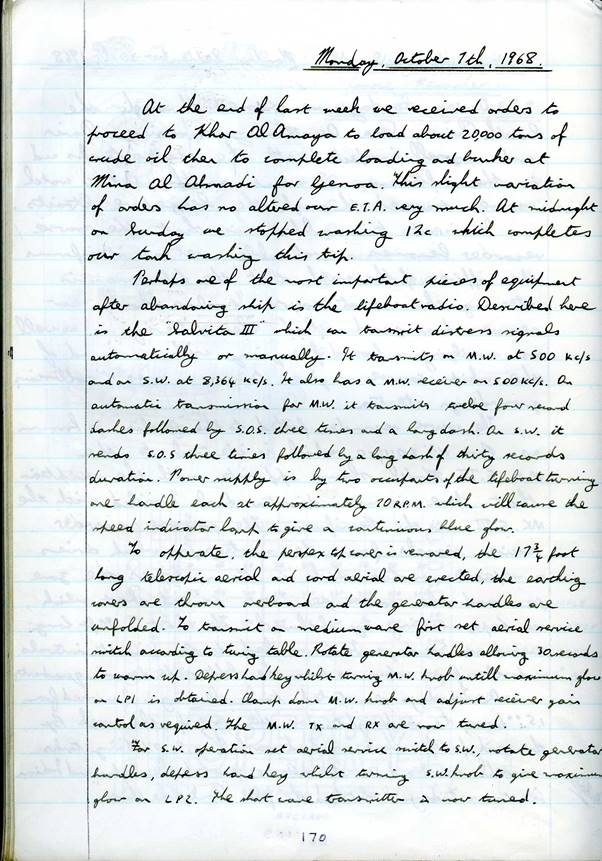 Monday, October 7th, 1968.
At the end of last week we received orders to
proceed to Khor Al Amaya to load about 20,000 tons of
crude oil then to complete loading and bunker at
Mina Al Ahmadi for Genoa. This slight variation
of orders has no altered our E.T.A. very much. At midnight
on Sunday we stopped washing 12c which completes
our tank washing this trip.
Perhaps one of the most important pieces of equipment
after abandoning ship is the lifeboat radio. Described here
is the "Salvita III" which can transmit distress signals
automatically or manually. It transmits on M.W. at 500 Kc/s
and on S.W. at 8,364 Kc/s. It also has a M.W. receiver on 500 Kc/s. On
automatic transmission for M.W. it transmits twelve four second
dashes followed by S.O.S. three times and a long dash. On S.W. it
sends S.O.S three times followed by a long dash of thirty seconds
duration. Power supply is by two occupants of the lifeboat turning
one handle each at approximately 70 R.P.M. which will cause the
speed indicator lamp to give a continuous blue glow.
To opperate, the perspex top cover is removed, the 17 3/4 foot
long telescopic aerial and cord aerial are erected, the earthing
covers are thrown overboard and the generator handles are
unfolded. To transmit on medium wave first set aerial service
switch according to tuning table. Rotate generator handles allowing 30 seconds
to warm up. Depress hand key whilst turning M.W. knob untill maximum glow
on LP1 is obtained. Clamp down M.W. knob and adjust receiver gain
control as required. The M.W. TX and RX are now tuned.
For S.W. operation set aerial service switch to S.W., rotate generator
handles, depress hand key whilst turning S.W. knob to give maximum
glow on LP2. The short wave transmitter is now tuned.
170